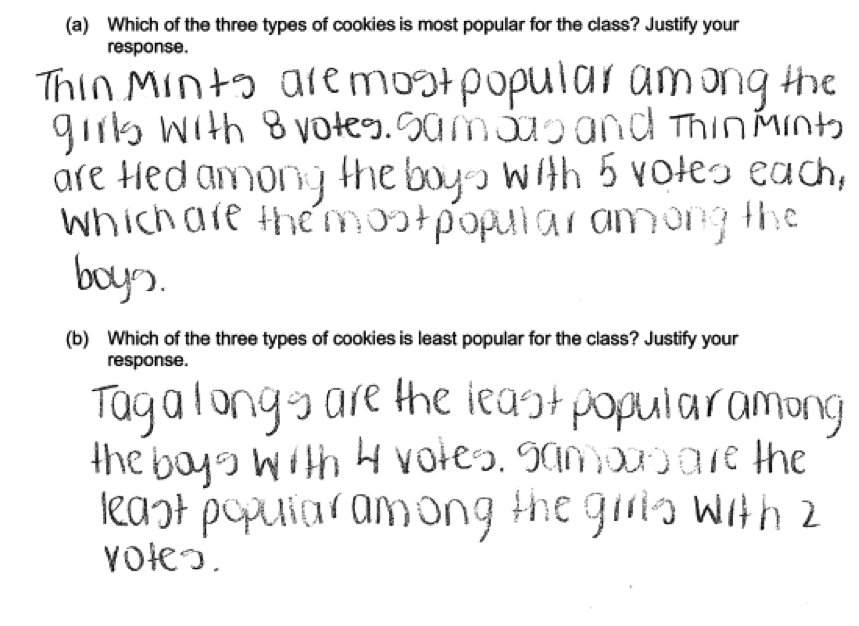 (a) Which of the three types of cookies is most popular for the class? Justify your
response.
Thin Mints are most popular among the
girls with 8 votes. Samoas and Thin Mints
are tied among the boys with 5 votes each,
which are the most popular among the
boys.
(b) Which of the three types of cookies is least popular for the class? Justify your
response.
Tagalongs are the least popular among
the boys with 4 votes. Samoas are the
least popular among the girls with 2
votes.